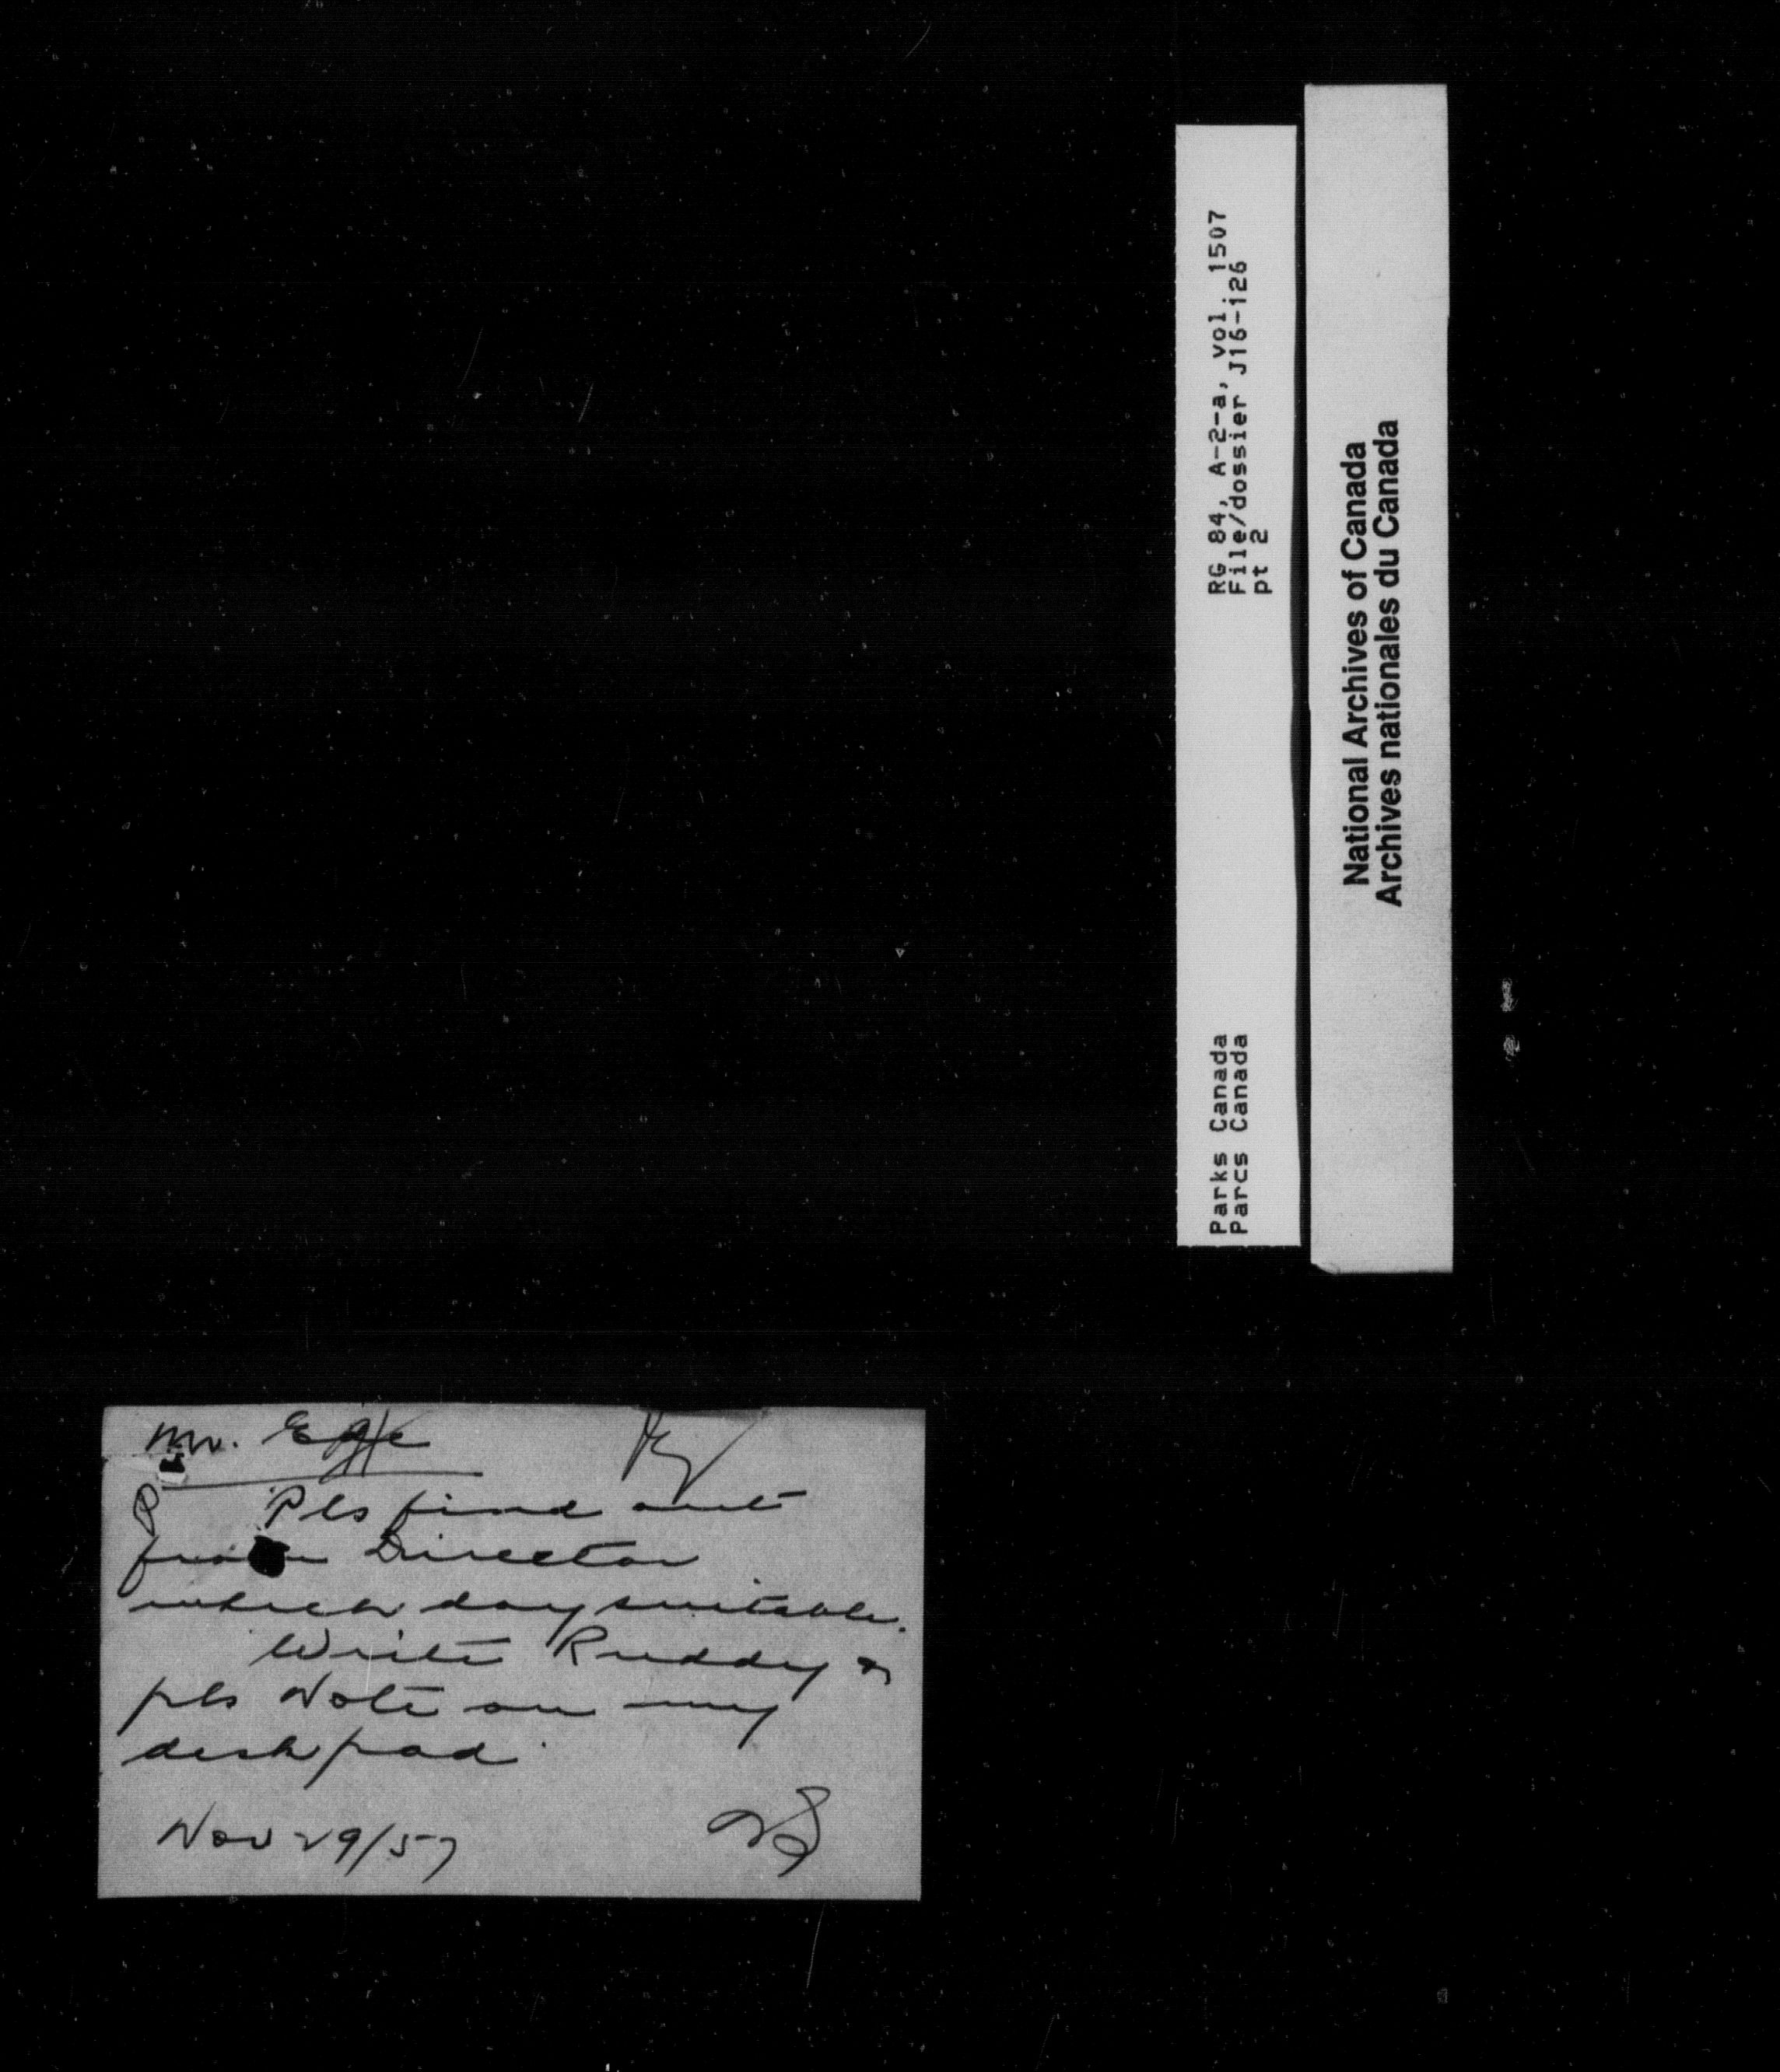 RG 84, A-2-a, vol. 1507
File/dossier J16-126
pt 2
Parks Canada
Parcs Canada
National Archives of Canada
Archives nationales du Canada
Mr.
Pls find out
from Director
which day suitable.
Write Ruddy &
pls Note on my
desk pad.
Nov 29/57